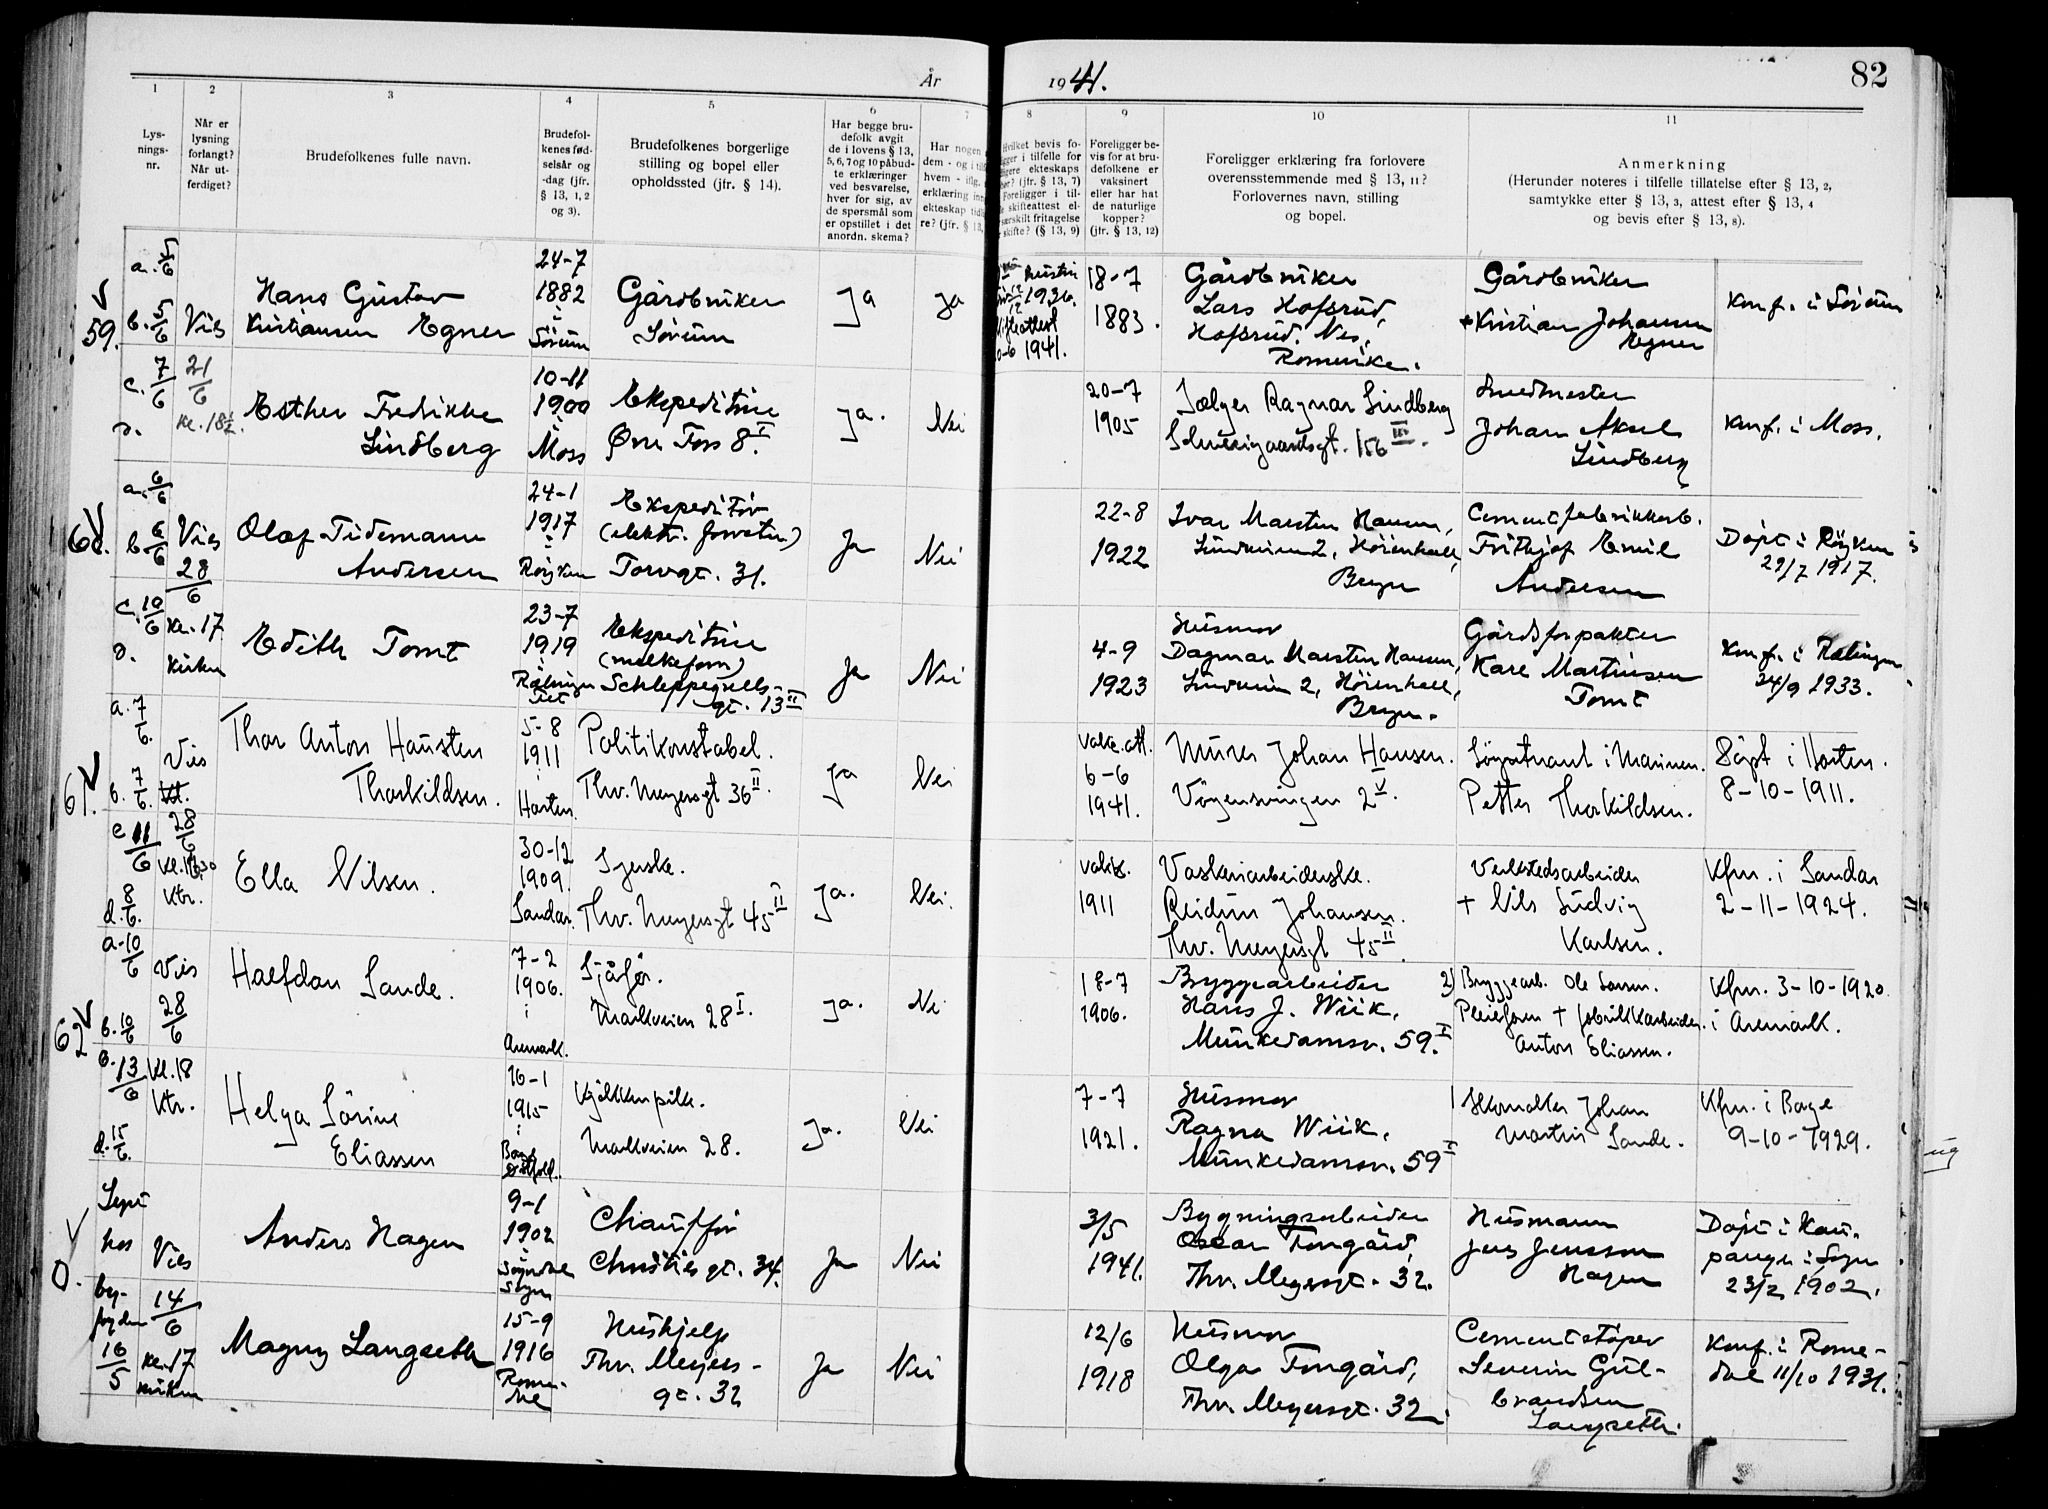 År
1941.
82
1
2
3
4
5
6
7
8
9
10
11
Lys-
nings-
nr.
Når er
lysning
forlangt?
Når ut-
ferdiget?
Brudefolkenes fulle navn.
Brudefol-
kenes fød-
selsår og
-dag (jfr.
§ 13, 1, 2
og 3).
Brudefolkenes borgerlige
stilling og bopel eller
opholdssted (jfr. § 14).
Har begge bru-
defolk avgit
de i lovens § 13,
5, 6, 7 og 10 påbud-
te erklæringer
ved besvarelse,
hver for sig, av
de spørsmål som
er opstillet i det
anordn. skema?
Har nogen
dem - og i
hvem - iflg.
erklæring
ekteskap
re? (jfr. § 13,
Hvilket bevis fo-
i tilfelle for
ekteskaps
(jfr. § 13, 7)
Foreligger i til-
skifteattest el-
særskilt fritagelse
skifte? (§ 13, 9)
Foreligger be-
vis for at bru-
defolkene er
vaksinert
eller har hat
de naturlige
kopper?
(jfr. § 13, 12)
Foreligger erklæring fra forlovere
overensstemmende med § 13, 11?
Forlovernes navn, stilling
og bopel.
Anmerkning
(Herunder noteres i tilfelle tillatelse efter § 13, 2,
samtykke efter § 13, 3, attest efter § 13, 4
og bevis efter § 13, 8).
59.
a. 5/6
b. 5/6
Vies
Hans Gustav
Kristiansen Egner
24-7
1882
i
Sørum
Gårdbruker
Sørum
Ja
Ja
1936.
1941.
18-7
1883.
Gårdbruker
Lars Hofsrud,
Hofsrud. Nes,
Romerike.
Gårdbruker
+ Kristian Johansen
Egner
Konf. i Sørum
c. 7/6
d.
21/6
Kl. 18½
Esther Fredrikke
Lindberg
10-11
1900
i
Moss
Ekspeditrise
Øvre Foss 8 I.
Ja.
Nei
20-7
1905
Ragnar Lindberg
Schweigaardsgt. 156 III.
Smedmester
Johan Aksel
Lindberg
Konf. i Moss.
60.
a. 6/6
b. 6/6
Vies
28/6
Olaf Tidemann
Andersen
24-1
1917
i
Røyken
Ekspeditør
(elektr. forretn)
Torvgt. 31.
Ja
Nei
22-8
1922
Ivar Marsten Hansen,
2, Høienhall,
Bryn
Cementfabrikkarb.
Frithjof Emil
Andersen
Døpt i Røyken
29/7 1917.
c. 10/6
d.
Kl. 17
Kirken
Edith Tomt
23-7
1919
i
Ekspeditrise
(melkeforr)
Schleppegrells-
gt. 13 II
Ja
Nei
4-9
1923
Husmor
Dagmar Marsten Hansen,
2, Høienhall,
Bryn.
Gårdsforpakter
Kare Martinsen
Tomt
Konf. i Rælingen
24/9 1933.
61.
a. 7/6.
b. 7/6.
Vies
28/6
Thor Anton Hausten
Thorkildsen.
5-8
1911
i
Horten
Politikonstabel.
Thv. Meyersgt 36 II.
Ja
Nei
vakc. att.
6-6
1941.
Murer Johan Hansen.
Vøyensvingen 2 V.
i Marinen.
Petter Thorkildsen.
Døpt i Horten.
8-10-1911.
c 11/6
d. 8/6.
Kl. 16.30
Ktr.
Ella Nilsen.
30-12
1909.
Sandar.
Syerske.
Thv. Meyersgt 45 II
Ja.
Nei.
1911
Vaskeriarbeiderske.
Reidun Johansen.
Thv. Meyersgt 45 II.
Verkstedsarbeider
+ Nils Ludvig
Karlsen.
Kfm. i Sandar
2-11-1924.
62
a. 10/6
b. 10/6
Vies
28/6
Halfdan Sande.
7-2
1906.
i
Aremark.
Sjåfør.
Markveien 28 I.
Ja.
Nei
18-7
1906.
Bryggearbeider
Hans J. Wiik,
Munkedamsv. 59. I
2) Bryggearb. Ole Larsen.
Pleiefaren + fabrikkarbeider.
Anton Eliassen.
Kfm. 3-10-1920
i Aremark.
c. 13/6
d. 15/6.
Kl. 18
Ktr.
Helga Sørine
Eliassen
16-1
1915
i
Borge
Østfold.
Kjøkkenpike.
Markveien 28.
Ja.
Nei
7-7
1921.
Husmor
Ragna Wiik,
Munkedamsv. 59 I
Skomaker Johan
Martin Sande.
Kfm. i Borge
9-10-1929.
0.
Lyst
hos
by-
fogden
16/5
Vies
14/6
Kl. 17
Kirken
Anders Hagen
9-1
1902
i
Sogndal
Sogn
Chauffør
Christiesgt. 34.
Ja
Nei
3/5
1941.
Bygningsarbeider
Oscar Tongård,
Thv. Meyersgt. 32.
Husmann
Jens Jensson
Hagen
Døpt i Kau-
panger i Sogn
23/2 1902.
Magny Langseth
15-9
1916
Rome-
dal
Hushjelp
Thv. Meyers-
gt. 32
Ja
Nei
12/6
1918
Husmor
Olga Tongård,
Thv. Meyersgt. 32.
Cementstøper
Severin Gul-
brandsen
Langseth.
Konf. i Rome-
dal 11/10 1931.